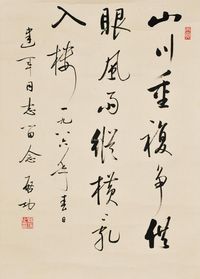 山川重複争供
眼風雨縱横亂
入樓一九八六年春日
建軍同志留念啟功